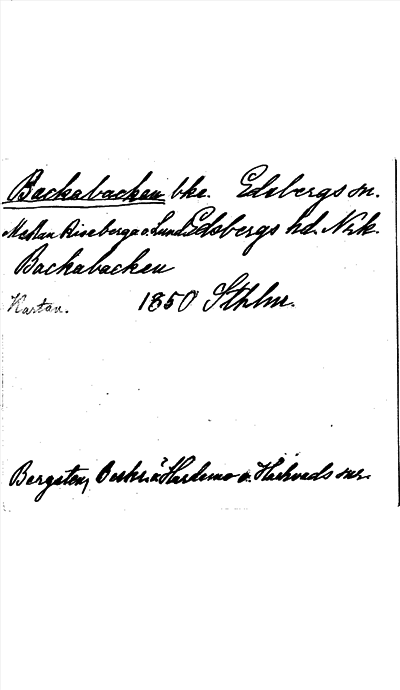 Backabacken bke. Edsbergs sn.
Mellan Riseberga o. Lund Edsbergs hd. Nrk.
Backabacken
Kartan. 1850 Sthlm.
Bergsten, Beskr. ö. Hardemo o. Hackvads snr.